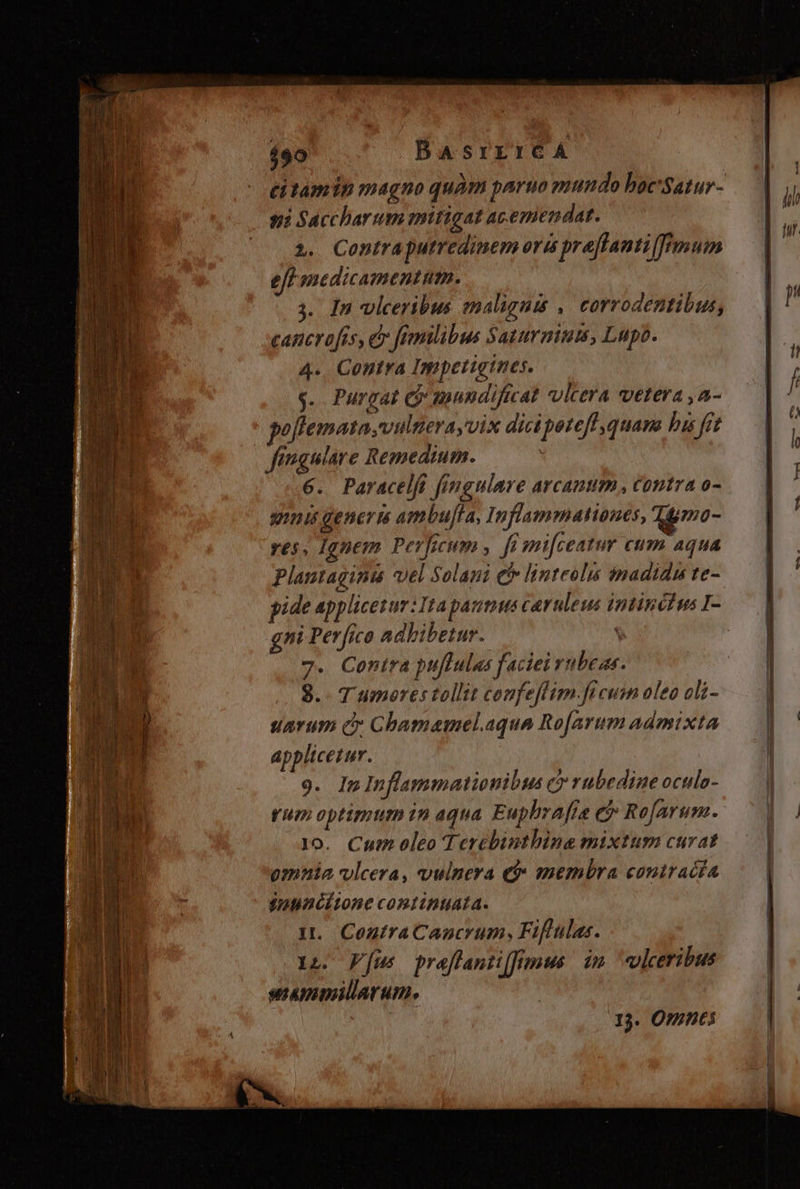 590 BASILICA
citamin magno quàm paruo mundo hoc Satur-
ni Saccharum mitigat ac emendat.
2. Contra putredinem oris præſtantiſſimum
eſt medicamentum.
3. In vlceribus malignis, corrodentibus,
cancroſis, & ſimilibus Saturninis, Lupo.
4. Contra Impetigines.
5. Purgat & mundificat vlcera vetera, a-
poſtemata, vulnera, vix dici poteſt, quam his ſit
ſingulare Remedium.
6. Paracelſi ſingulare arcanum, contra o-
mnis generis ambuſta, Inflammationes, Tumo-
res, Ignem Perſicum, ſi miſceatur cum aqua
Plantaginis vel Solani & linteolis madidis te-
pide applicetur: Ita pannus cæruleus intinctus I-
gni Perſico adhibetur.
7. Contra puſtulas faciei rubeas.
8. Tumores tollit confeſtim ſi cum oleo oli-
uarum & Chamæmel. aqua Roſarum admixta
applicetur.
9. In Inflammationibus & rubedine oculo-
rum optimum in aqua Euphraſiæ & Roſarum.
10. Cum oleo Terebinthinæ mixtum curat
omnia vlcera, vulnera & membra contracta
inunctione continuata.
11. Contra Cancrum, Fiſtulas.
12. Vſus præſtantiſſimus in vlceribus
mammillarum.
13. Omnes